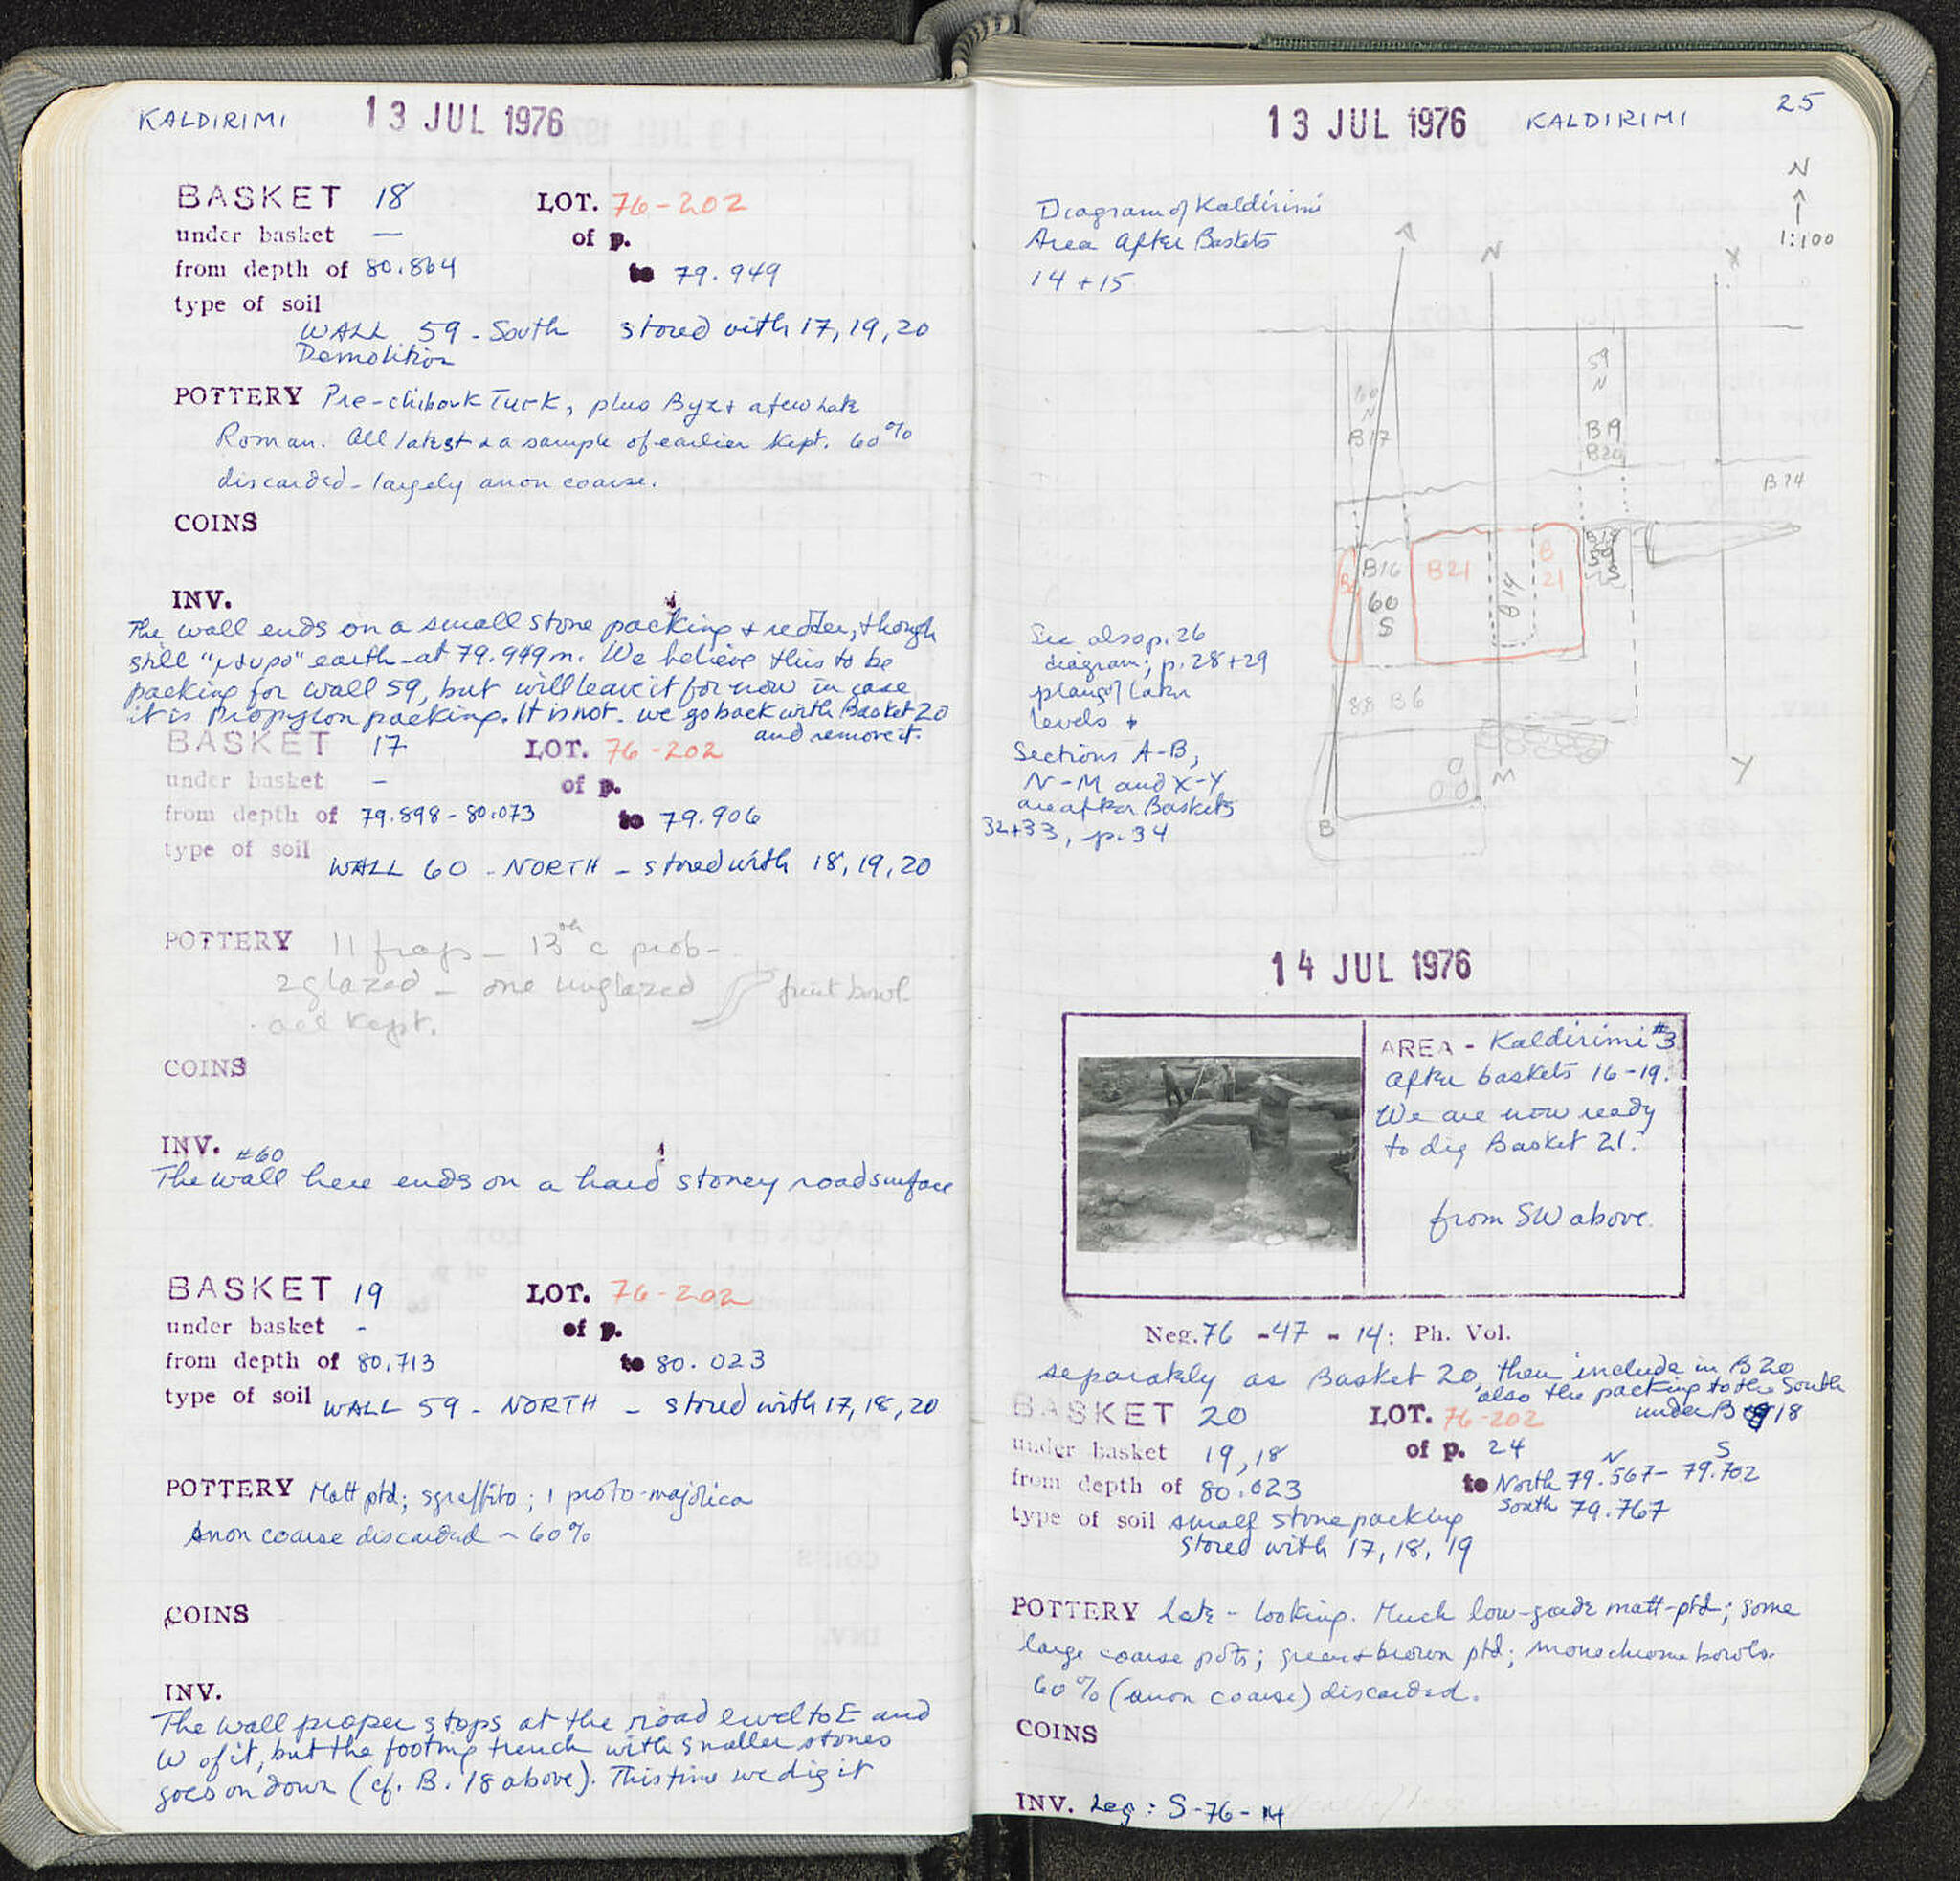 KALDIRIMI 13 JUL 1976
BASKET 18 LOT. 76-202
under basket — of p.
from depth of 80.864 to 79.949
type of soil
WALL 59 - South stored with 17, 19, 20
Demolition
POTTERY Pre-chibouk Turk, plus Byz + a few Late
Roman. All latest + a sample of earlier kept. 60%
discarded - largely anon coarse.
COINS
INV.
The wall ends on a small stone packing + redder, though
still "μαυρο" earth - at 79.949m. We believe this to be
packing for wall 59, but will leave it for now in case
it is Propylon packing. It is not. We go back with Basket 20
and remove it.
BASKET 17 LOT. 76-202
under basket - of p.
from depth of 79.898 - 80.073 to 79.906
type of soil
WALL 60 - NORTH - stored with 18, 19, 20
POTTERY 11 frags - 13th c prob -
2 glazed - one unglazed fruit bowl.
all kept.
COINS
INV. #60
The wall here ends on a hard stoney road surface
BASKET 19 LOT. 76-202
under basket - of p.
from depth of 80.713 to 80.023
type of soil WALL 59 - NORTH - stored with 17, 18, 20
POTTERY Matt ptd; sgraffito; 1 proto-majolica
Anon coarse discarded ~ 60%
COINS
INV.
The wall proper stops at the road level to E and
W of it, but the footing trench with smaller stones
goes on down (cf. B. 18 above). This time we dig it
13 JUL 1976 KALDIRIMI 25
N
1:100
Diagram of Kaldirimi
Area After Baskets
14 + 15
A N X
60
N
B17
59
N
B19
B20
B14
B16
60
S
B21
B14
B
21
88 B6
See also p. 26
diagram; p. 28+29
plans of later
levels +
Sections A-B,
N-M and X-Y
are after Baskets
32+33, p. 34
B M Y
14 JUL 1976
AREA - Kaldirimi #3
After baskets 16-19.
We are now ready
to dig Basket 21.
from SW above.
Neg. 76 - 47 - 14: Ph. Vol.
separately as Basket 20, then include in B20
also the packing to the South
under B 18
BASKET 20 LOT. 76-202
under basket 19, 18 of p. 24
from depth of 80.023 to North N 79.567 - S 79.702
South 79.767
type of soil small stone packing
stored with 17, 18, 19
POTTERY Late - looking. Much low-grade matt-ptd; some
large coarse pots; green + brown ptd; monochrome bowls.
60% (anon coarse) discarded.
COINS
INV. Leg: S-76-14